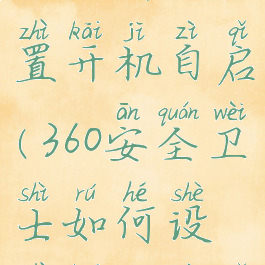 zhì kāi jī zì qǐ
置开机自启
ān quán wèi
(360安全卫
shì rú hé shè
士如何设